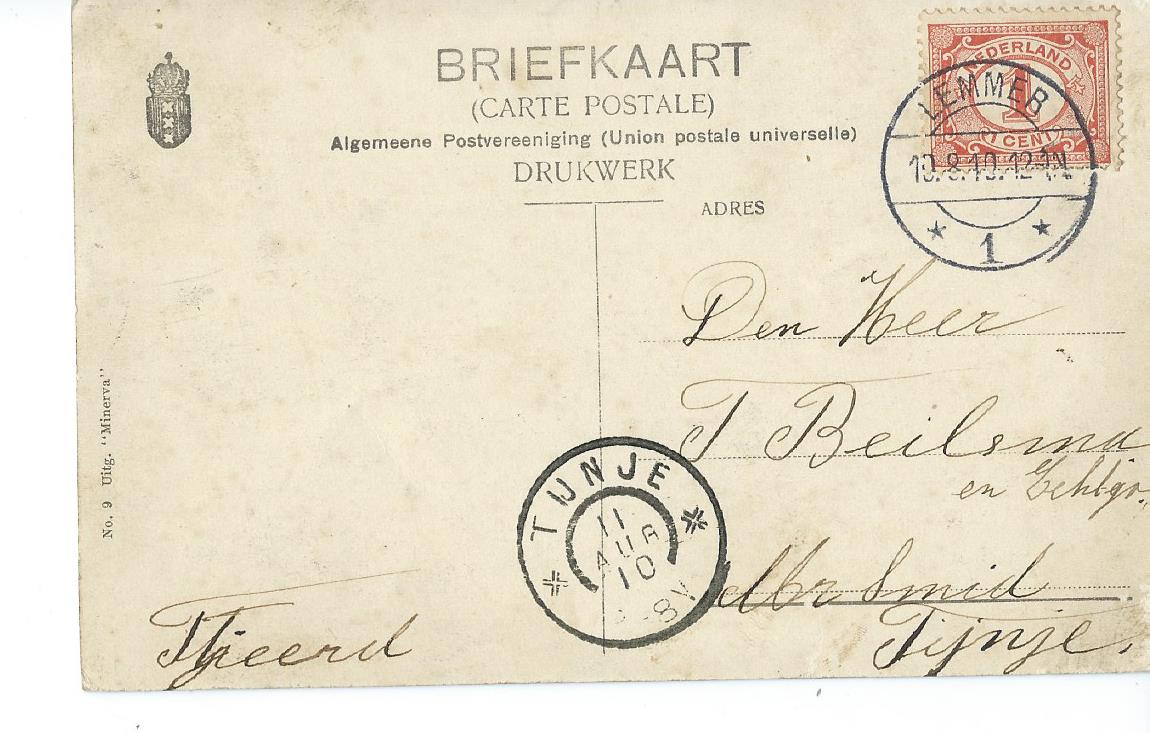 BRIEFKAART
(CARTE POSTALE)
Algemeene Postvereeniging (Union postale universelle)
DRUKWERK
ADRES
NEDERLAND
1
1 CENT
LEMMER
10.8.10.12-1N
1
Den Heer
T Beilsma
en Echtgn.
Mr Smid
Tijnje.
TIJNJE
11
AUG
10
-8V
No. 9 Uitg. "Minerva"
Tjeerd